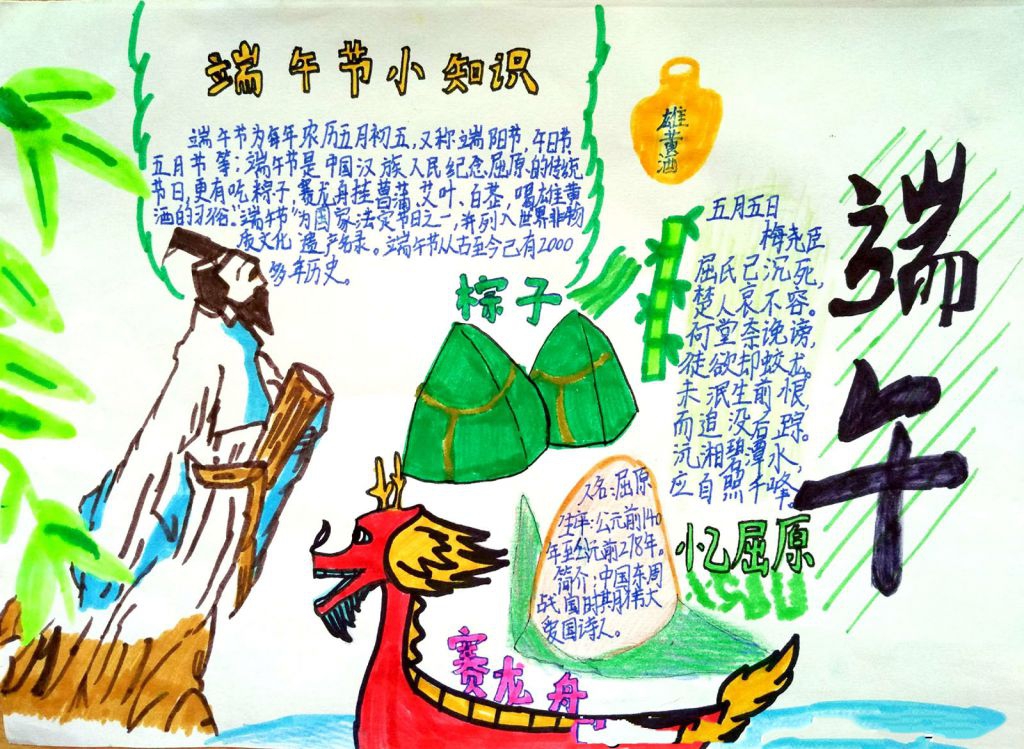 端午节小知识
端午节为每年农历五月初五,又称端阳节,午日节
五月节等.端午节是中国汉族人民纪念屈原的传统
节日,更有吃粽子,赛龙舟挂菖蒲、艾叶、白芷,喝雄黄
酒的习俗.“端午节”为国家法定节日之一,并列入世界非物
质文化遗产名录。端午节从古至今已有2000
多年历史。
雄黄酒
粽子
五月五日
梅尧臣
屈氏已沉死,
楚人哀不容。
何尝奈谗谤,
徒欲却蛟龙。
未泯生前恨,
而追没后踪。
沅湘碧潭水,
应自照千峰。
端午
人名:屈原
生卒:公元前140
年至公元前278年。
简介:中国东周
战国时期伟大
爱国诗人。
忆屈原
赛龙舟